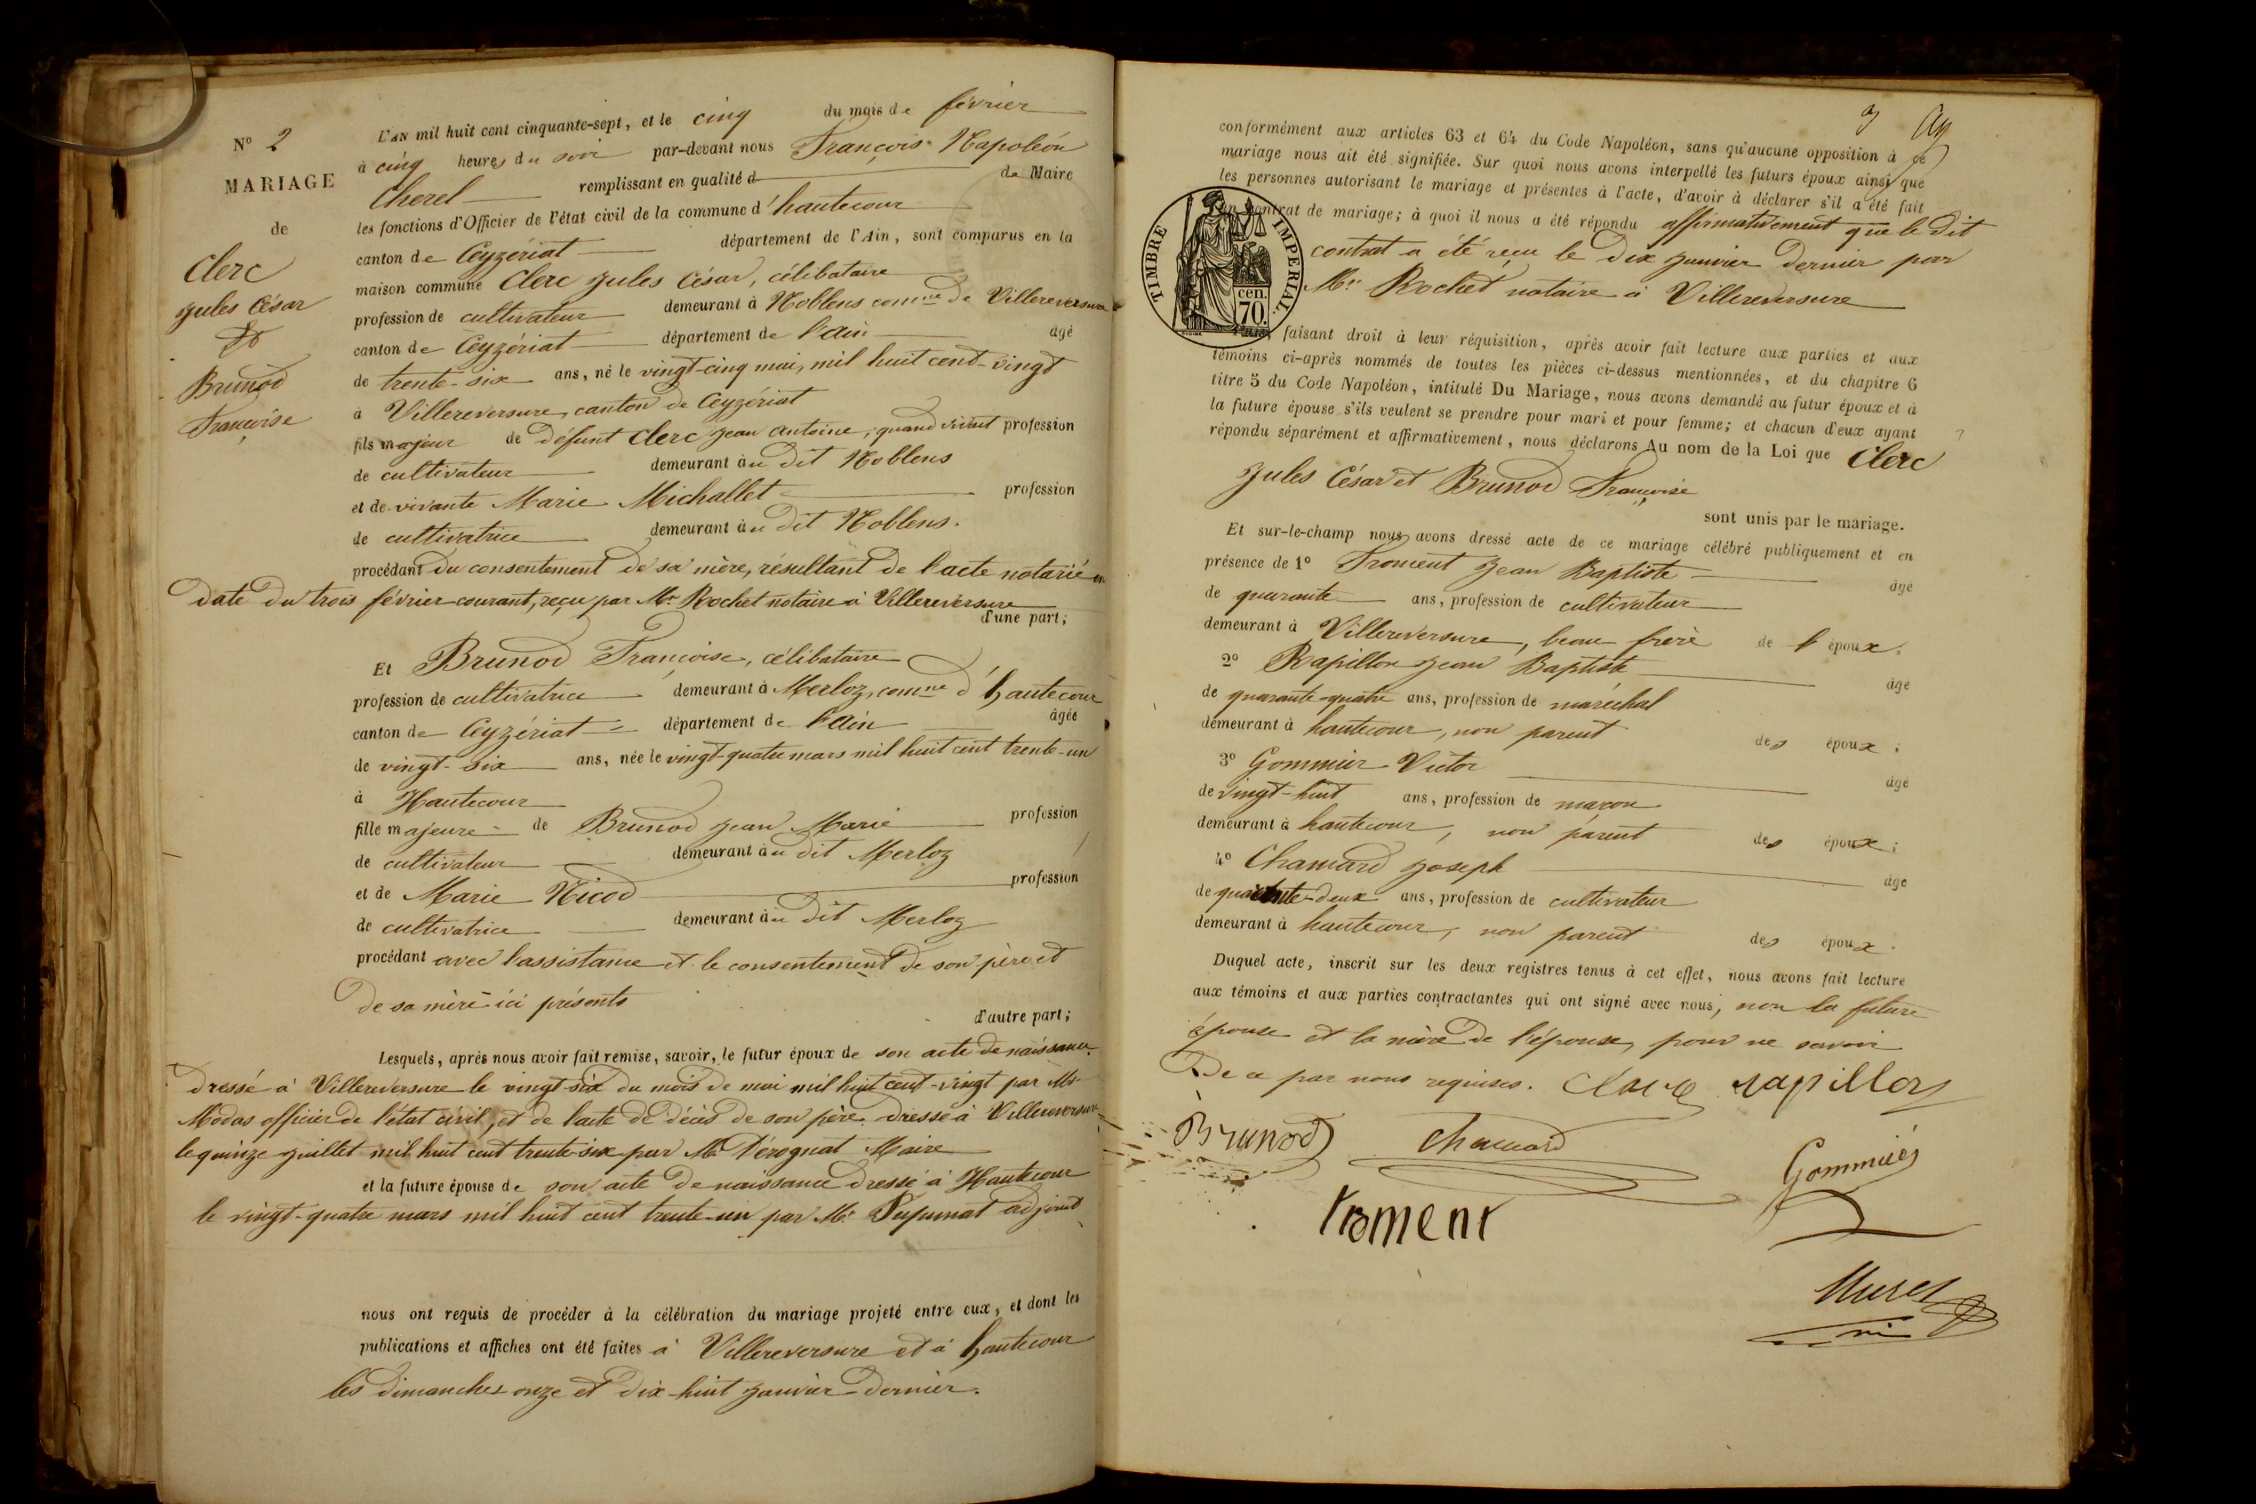 N° 2
MARIAGE
de
Clerc
Jules César
&
Brunod
Françoise
L'AN mil huit cent cinquante-sept, et le cinq du mois de février
à cinq heures du soir par-devant nous François Napoléon
Cherel remplissant en qualité d de Maire
les fonctions d'Officier de l'état civil de la commune d'hautecour
canton de Ceyzériat département de l'Ain, sont comparus en la
maison commune Clerc Jules César, célibataire
profession de cultivateur demeurant à Noblens comne de Villereversure
canton de Ceyzériat département de l'Ain âgé
de trente-six ans, né le vingt-cinq mai, mil huit cent-vingt
à Villereversure, canton de Ceyzériat
fils majeur de défunt Clerc Jean Antoine, quand vivait profession
de cultivateur demeurant au dit Noblens
et de vivante Marie Michallet profession
de cultivatrice demeurant au dit Noblens.
procédant du consentement de sa mère, résultant de l'acte notarié en
date du trois février courant, reçu par Mr Rochet notaire à Villereversure
d'une part;
Et Brunod Françoise, célibataire
profession de cultivatrice demeurant à Merloz, comne d'hautecour
canton de Ceyzériat département de l'Ain âgée
de vingt-six ans, née le vingt-quatre mars mil huit cent trente-un
à Hautecour
fille majeure de Brunod Jean Marie profession
de cultivateur demeurant au dit Merloz
et de Marie Nicod profession
de cultivatrice demeurant au dit Merloz
procédant avec l'assistance et le consentement de son père et
de sa mère ici présents
d'autre part;
Lesquels, après nous avoir fait remise, savoir, le futur époux de son acte de naissance
dressé à Villereversure le vingt-six du mois de mai mil huit cent-vingt par Mr
Modas officier de l'état civil, et de l'acte de décès de son père dressé à Villereversure
le quinze juillet mil huit cent trente-six par Mr Pérognat Maire
et la future épouse de son acte de naissance dressé à Hautecour
le vingt-quatre mars mil huit cent trente-un par Mr Pupunat adjoint
nous ont requis de procéder à la célébration du mariage projeté entre eux, et dont les
publications et affiches ont été faites à Villereversure et à hautecour
les dimanches onze et dix-huit janvier dernier.
3
conformément aux articles 63 et 64 du Code Napoléon, sans qu'aucune opposition à ce
mariage nous ait été signifiée. Sur quoi nous avons interpellé les futurs époux ainsi que
les personnes autorisant le mariage et présentes à l'acte, d'avoir à déclarer s'il a été fait
un contrat de mariage; à quoi il nous a été répondu affirmativement que le dit
contrat a été reçu le dix janvier dernier par
Mr Rochet notaire à Villereversure
TIMBRE IMPERIAL.
cen.
70.
faisant droit à leur réquisition, après avoir fait lecture aux parties et aux
témoins ci-après nommés de toutes les pièces ci-dessus mentionnées, et du chapitre 6
titre 5 du Code Napoléon, intitulé Du Mariage, nous avons demandé au futur époux et à
la future épouse s'ils veulent se prendre pour mari et pour femme; et chacun d'eux ayant
répondu séparément et affirmativement, nous déclarons Au nom de la Loi que Clerc
Jules César et Brunod Françoise
sont unis par le mariage.
Et sur-le-champ nous avons dressé acte de ce mariage célébré publiquement et en
présence de 1° Froment Jean Baptiste âgé
de quarante ans, profession de cultivateur
demeurant à Villereversure, beau frère de l'époux;
2° Rapillon Jean Baptiste âgé
de quarante-quatre ans, profession de maréchal
demeurant à hautecour, non parent des époux;
3° Gommier Victor âgé
de vingt-huit ans, profession de maçon
demeurant à hautecour, non parent des époux;
4° Chanard Joseph âgé
de quarante-deux ans, profession de cultivateur
demeurant à hautecour, non parent des époux.
Duquel acte, inscrit sur les deux registres tenus à cet effet, nous avons fait lecture
aux témoins et aux parties contractantes qui ont signé avec nous, non la future
épouse et la mère de l'épouse, pour ne savoir
de ce par nous requises. Clerc rapillon
Brunod Chanard Gommier
froment